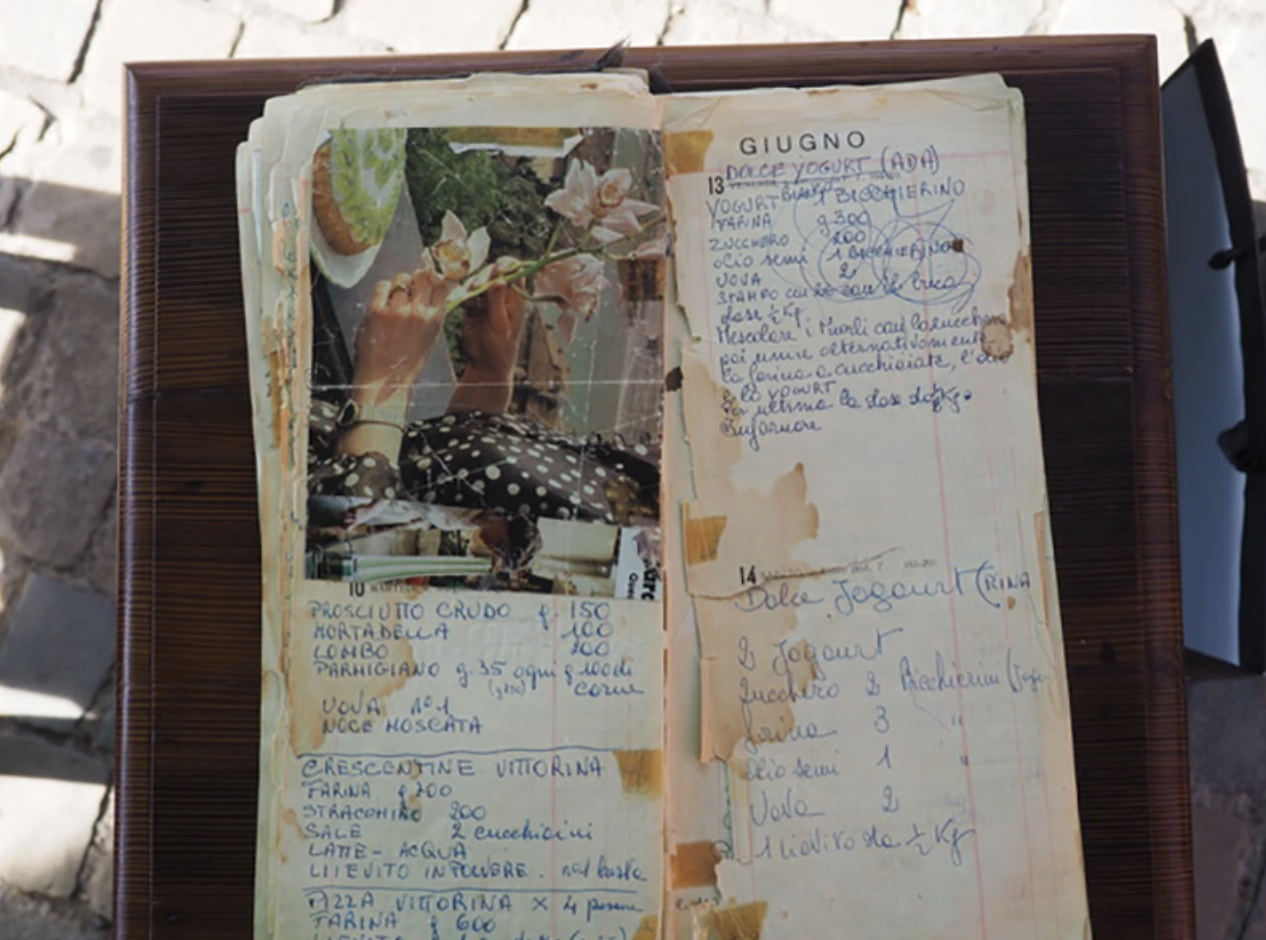 10
PROSCIUTTO CRUDO g. 150
MORTADELLA 100
LOMBO 200
PARMIGIANO g. 35 ogni g 100 di
carne
UOVA n° 1
NOCE MOSCATA
CRESCENTINE VITTORINA
FARINA g 700
STRACCHINO 200
SALE 2 cucchiaini
LATTE - ACQUA
LIEVITO IN POLVERE .
PIZZA VITTORINA X 4 persone
FARINA g 600
GIUGNO
DOLCE YOGURT (ADA)
13
YOGURT 1 BICCHIERINO
FARINA g 300
ZUCCHERO 200
olio semi 1 BICCHIERINO
UOVA 2
STAMPO con il buco
dose ½ Kg.
Mescolare i tuorli con lo zucchero
poi unire alternativamente
la farina a cucchiaiate, l'olio
e lo YOGURT
Per ultima la dose da ½ Kg.
Infornare
14
Dolce Jogourt (RINA
2 Jogourt
Zucchero 2 Bicchierini
farina 3 "
Olio semi 1 "
Uova 2
1 Lievito da ½ Kg